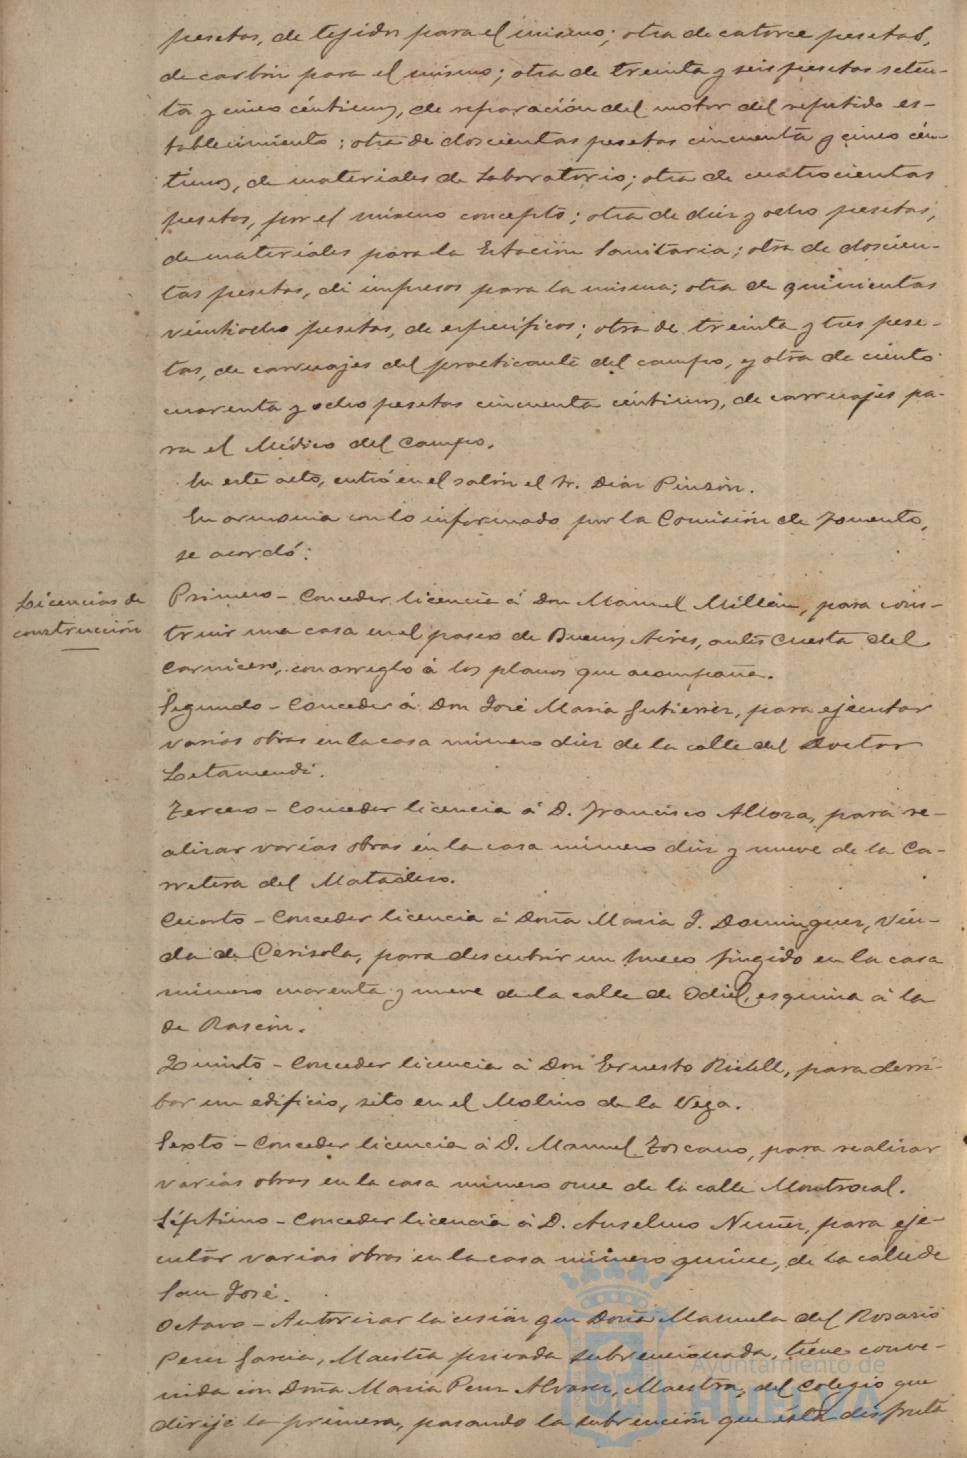 pesetas, de tejidos para el mismo; otra de catorce pesetas,
de carbón para el mismo; otra de treinta y seis pesetas seten-
ta y cinco céntimos, de reparación del motor del repetido es-
tablecimiento; otra de doscientas pesetas cincuenta y cinco cén-
timos, de materiales de Laboratorio; otra de cuatrocientas
pesetas, por el mismo concepto; otra de diez y ocho pesetas,
de materiales para la Estación Sanitaria; otra de doscien-
tas pesetas, de impresos para la misma; otra de quinientas
veintiocho pesetas, de específicos; otra de treinta y tres pese-
tas, de carruajes del practicante del campo, y otra de ciento
cuarenta y ocho pesetas cincuenta céntimos, de carruajes pa-
ra el Médico del Campo.
En este acto, entró en el salón el Sr. Díaz Pinzón.
En armonía con lo informado por la Comisión de Fomento,
se acordó:
Licencias de
construcción
Primero - Conceder licencia á Don Manuel Millán, para cons-
truir una casa en el paseo de Buenos Aires, antes Cuesta del
Carnicero, con arreglo á los planos que acompaña.
Segundo - Conceder á Don José María Gutiérrez, para ejecutar
varias obras en la casa número diez de la calle del Doctor
Letamendi.
Tercero - Conceder licencia á D. Francisco Alloza, para re-
alizar varias obras en la casa número diez y nueve de la Ca-
rretera del Matadero.
Cuarto - Conceder licencia á Doña María J. Domínguez, Viu-
da de Cerisola, para descubrir un hueco fingido en la casa
número cuarenta y nueve de la calle de Odiel, esquina á la
de Rascón.
Quinto - Conceder licencia á Don Ernesto Ridell, para derri-
bar un edificio, sito en el Molino de la Vega.
Sexto - Conceder licencia á D. Manuel Toscano, para realizar
varias obras en la casa número once de la calle Montrocal.
Séptimo - Conceder licencia á D. Anselmo Núñez, para eje-
cutar varias obras en la casa número quince, de la calle de
San José.
Octavo - Autorizar la cesión que Doña Manuela del Rosario
Perez García, Maestra privada subvencionada, tiene conve-
nida con Doña María Perez Alvarez, Maestra, del Colegio que
dirije la primera, pasando la subvención que ésta disfruta
Ayuntamiento de
HUELVA